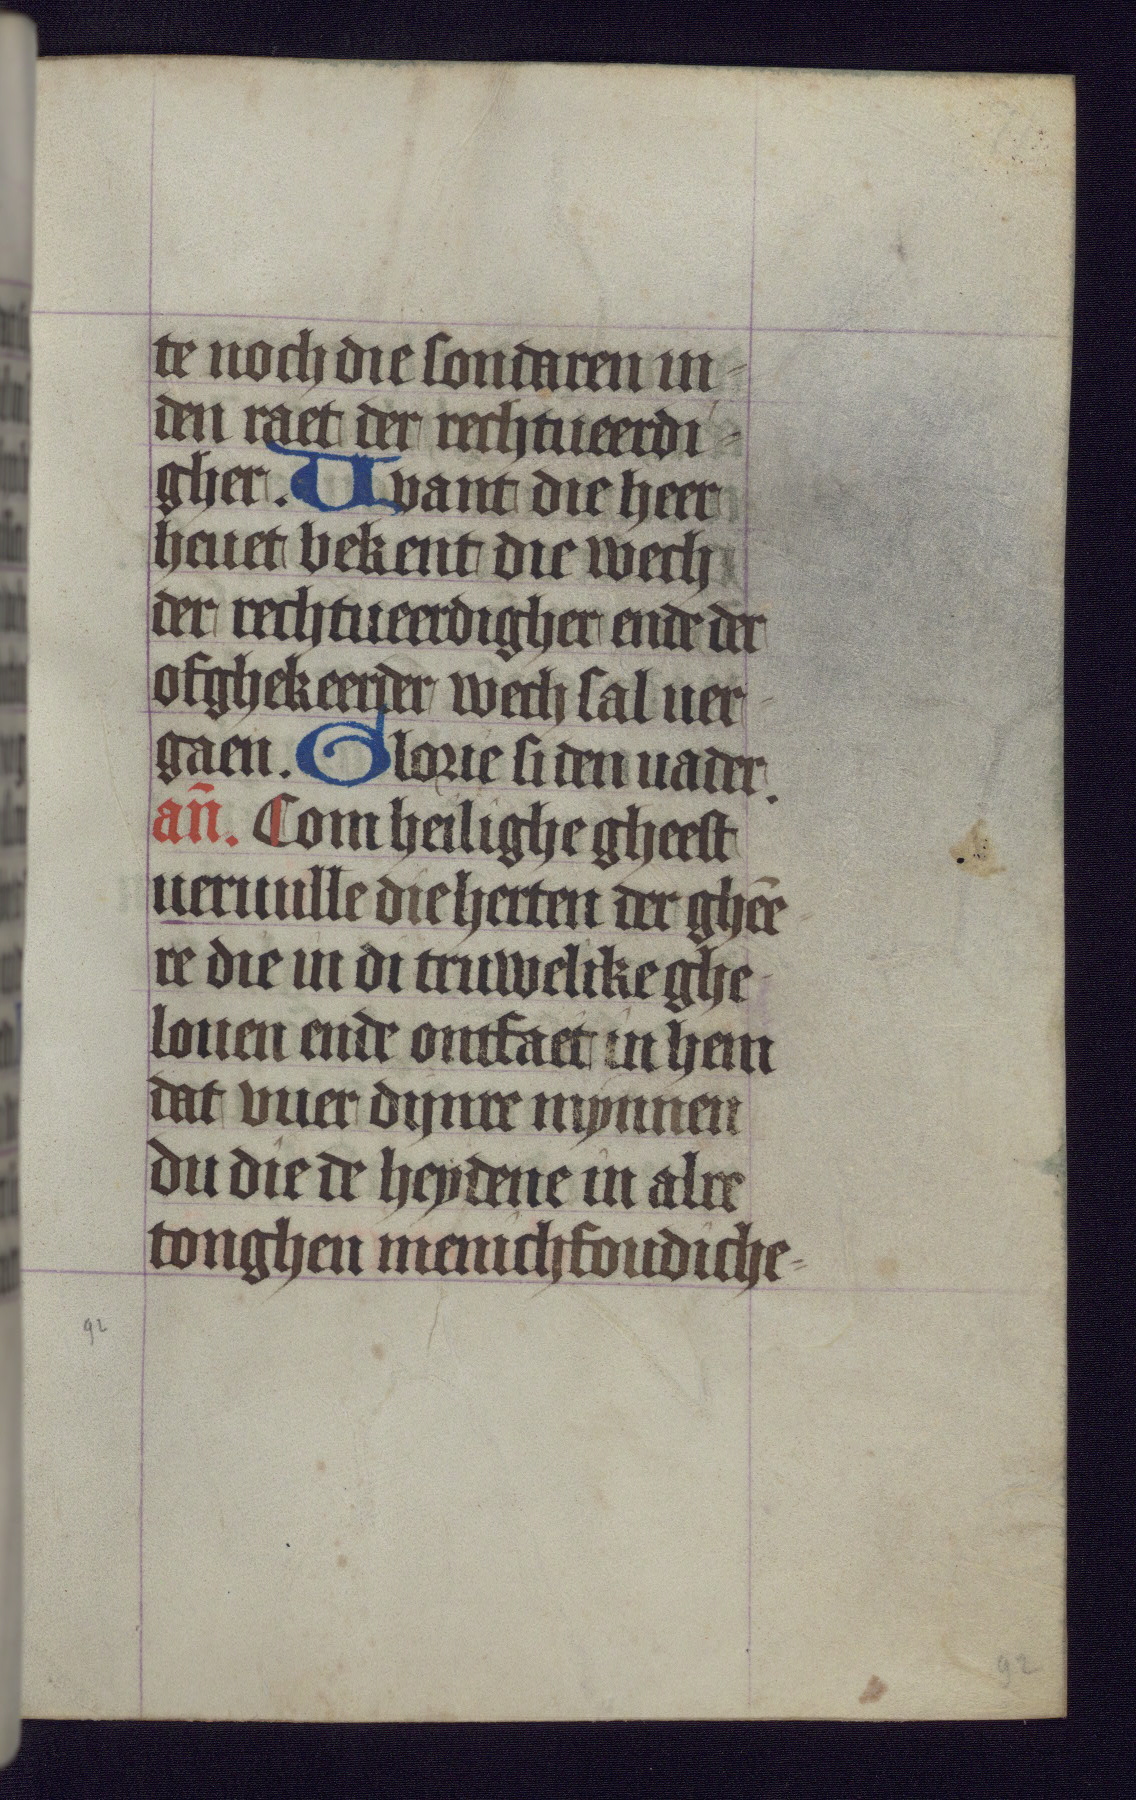 te noch die sondaren in-
den raet der rechtueerdi-
gher. Uvant die heer
heuet bekent die wech
der rechtueerdigher ende der
ofghekeerder wech sal uer-
gaen. Glorie si den uader.
an̄. Com heilighe gheest
ueruulle die herten der ghēe
re die in di truwelike ghe-
louen ende ontfaet in hem
dat vuer dijnre mynnen
du die de heydene in alre
tonghen menichfoudiche-
92
92